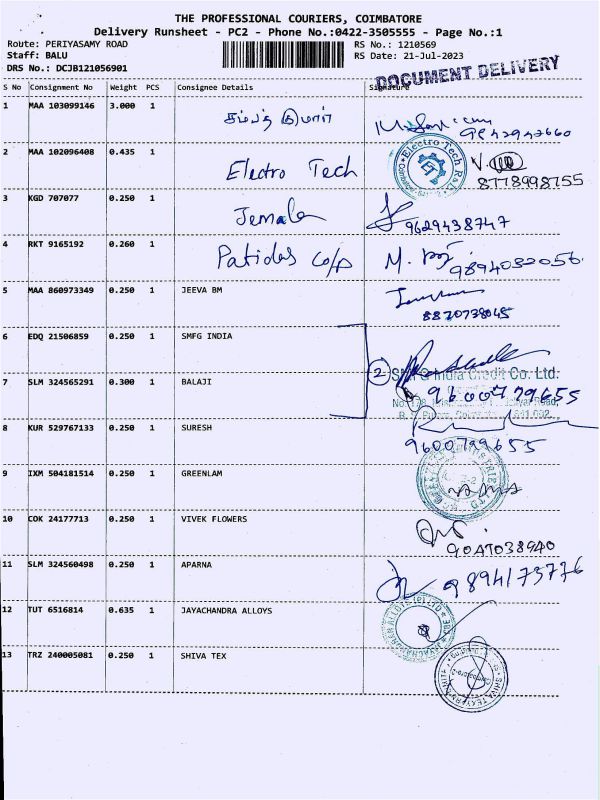 THE PROFESSIONAL COURIERS, COIMBATORE
Delivery Runsheet - PC2 - Phone No.:0422-3505555 - Page No.:1
Route: PERIYASAMY ROAD
RS No.: 1210569
Staff: BALU
RS Date: 21-Jul-2023
DRS No.: DCJB121056901
DOCUMENT DELIVERY
S No Consignment No Weight PCS Consignee Details Signature
1 MAA 103099146 3.000 1 சம்பத் குமார்
2 MAA 102096408 0.435 1 Electro Tech
Electro Tech R&D
8778998755
3 KGD 707077 0.250 1
9629438747
4 RKT 9165192 0.260 1 Patidas
9894032056
5 MAA 860973349 0.250 1 JEEVA BM
8820738045
6 EDQ 21506859 0.250 1 SMFG INDIA
2
SMFG India Credit Co. Ltd.
7 SLM 324565291 0.300 1 BALAJI
9600779655
8 KUR 529767133 0.250 1 SURESH
9600799655
9 IXM 504181514 0.250 1 GREENLAM
10 COK 24177713 0.250 1 VIVEK FLOWERS
9047038940
11 SLM 324560498 0.250 1 APARNA
9894173776
12 TUT 6516814 0.635 1 JAYACHANDRA ALLOYS
13 TRZ 240005081 0.250 1 SHIVA TEX